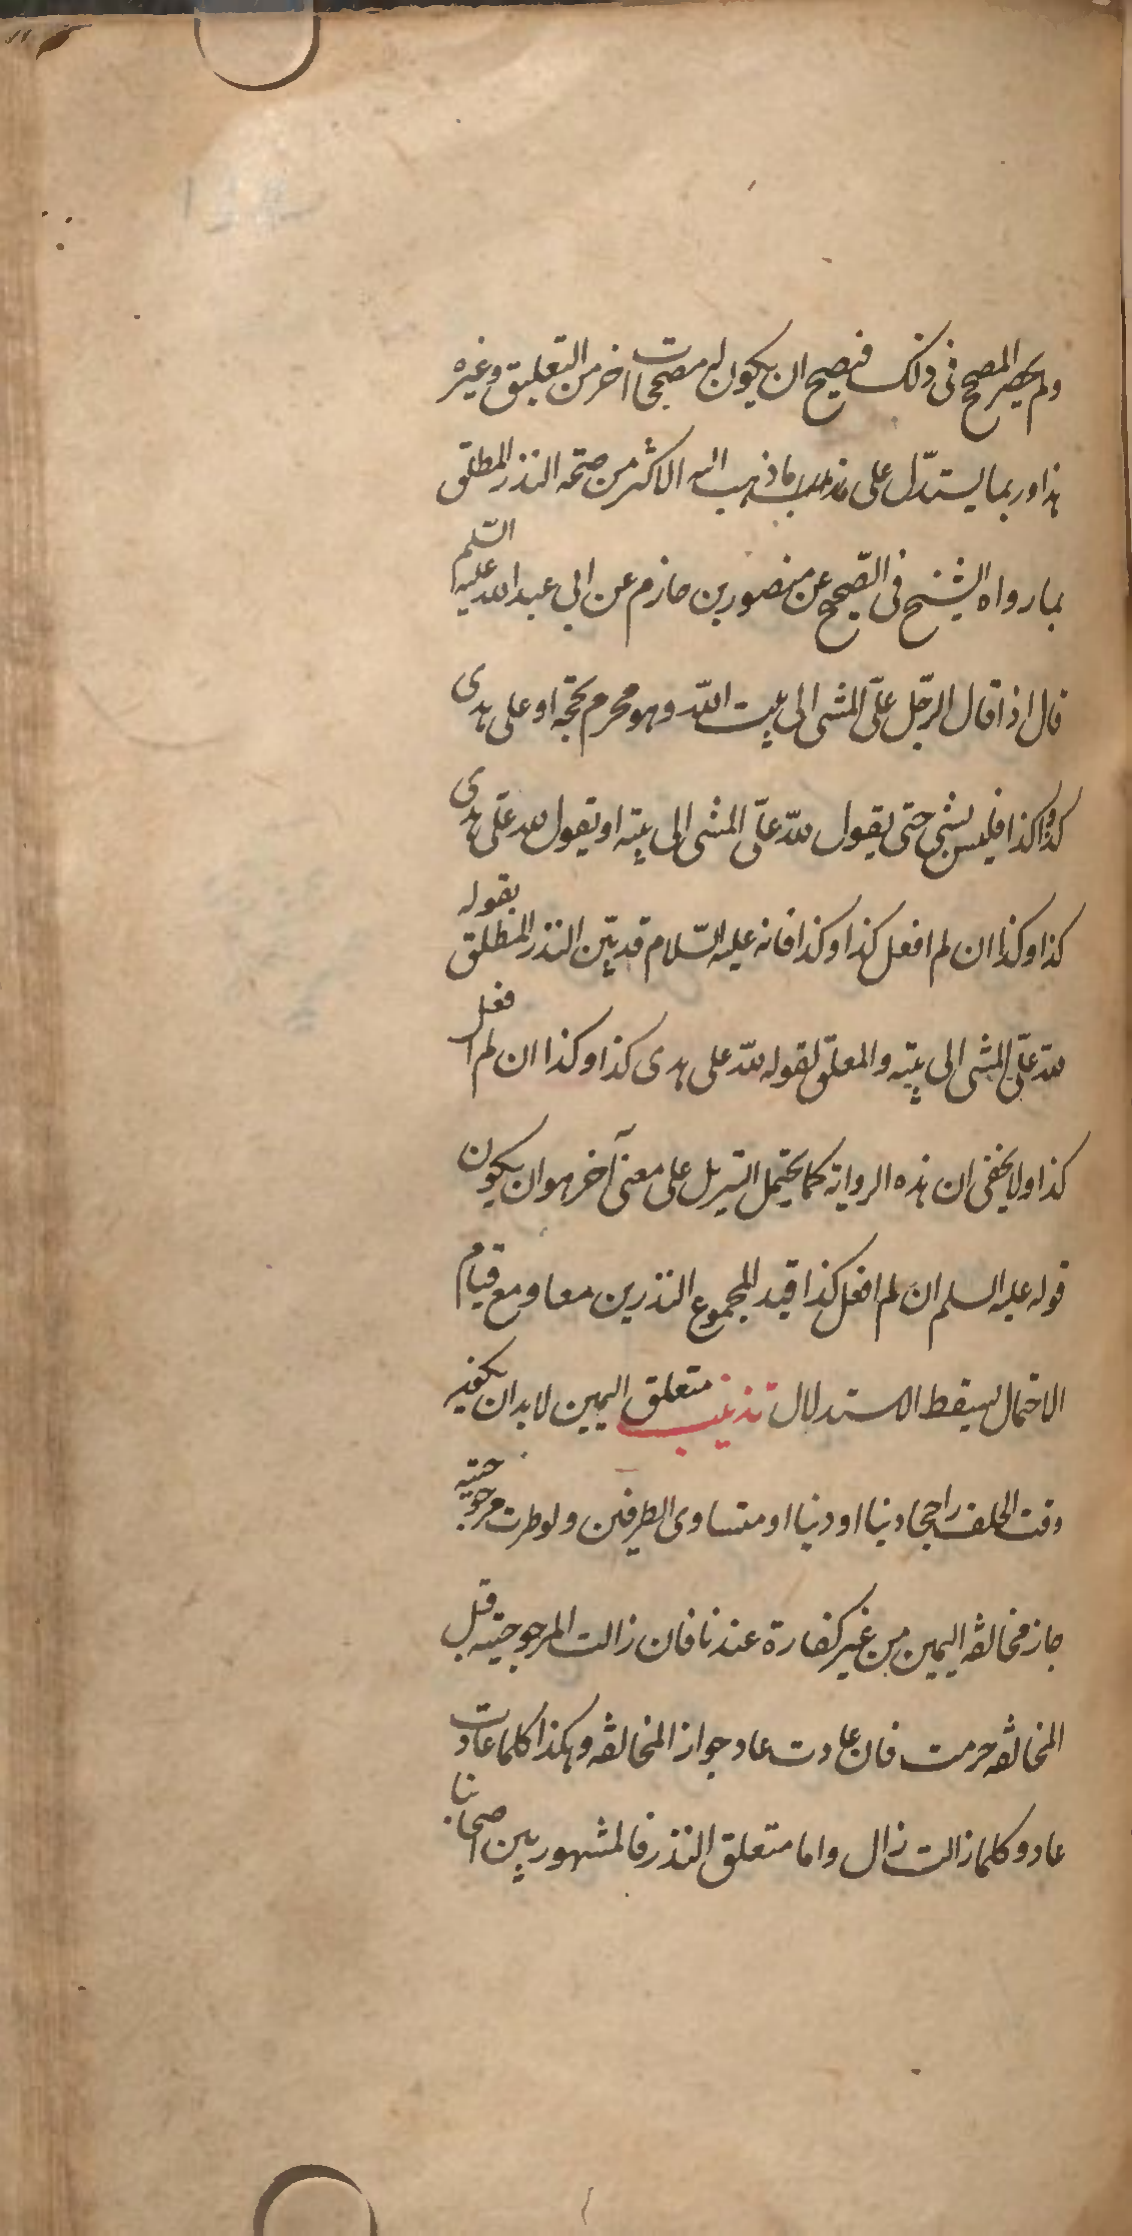 ولم يحصر المصحح فى ذلك فيصح ان يكون له مصححات اخر من التعليق وغيره
هذا وربما يستدل على مذهب ما ذهب اليه الاكثر من صحة النذر المطلق
بما رواه الشيخ فى الصحيح عن منصور بن حازم عن ابى عبد الله عليه السلم
قال اذا قال الرجل علىّ المشى الى بيت الله وهو محرم بحجة او على هدى
كذا وكذا فليس بشى حتى يقول لله علىّ المشى الى بيته او يقول لله علىّ هدى
كذا وكذا ان لم افعل كذا وكذا فانه عليه السلام قد بيّن النذر المطلق بقوله
لله علىّ المشى الى بيته والمعلق لقوله لله على هدى كذا وكذا ان لم افعل
كذا ولا يخفى ان هذه الرواية كما يحتمل التنزيل على معنى آخر هو ان يكون
قوله عليه السلم ان لم افعل كذا قيد المجموع النذرين معا ومع قيام
الاحتمال يسقط الاستدلال تذنيب متعلق اليمين لا بد ان يكون
وقت الحلف راجحا دينا او دنيا او متساوى الطرفين ولو طرت مرجوحيته
جاز مخالفة اليمين من غير كفارة عندنا فان زالت المرجوحيته قبل
المخالفه حرمت فان عادت عاد جواز المخالفه وهكذا كلما عادت
عاد وكلما زالت زال واما متعلق النذر فالمشهور بين اصحابنا